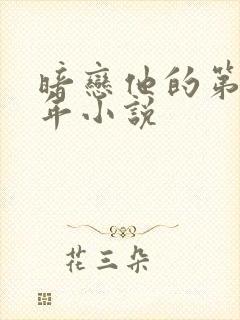 暗戀他的第
年小說
花三朵